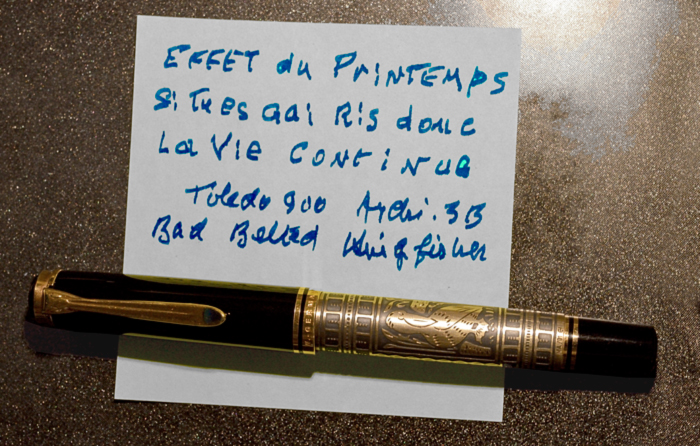 EFFET du PRINTEMPS
Si Tu es Gai Ris donc
La Vie CONTINUE
Toledo 900 Archi. 3B
Bad Belted Kingfisher